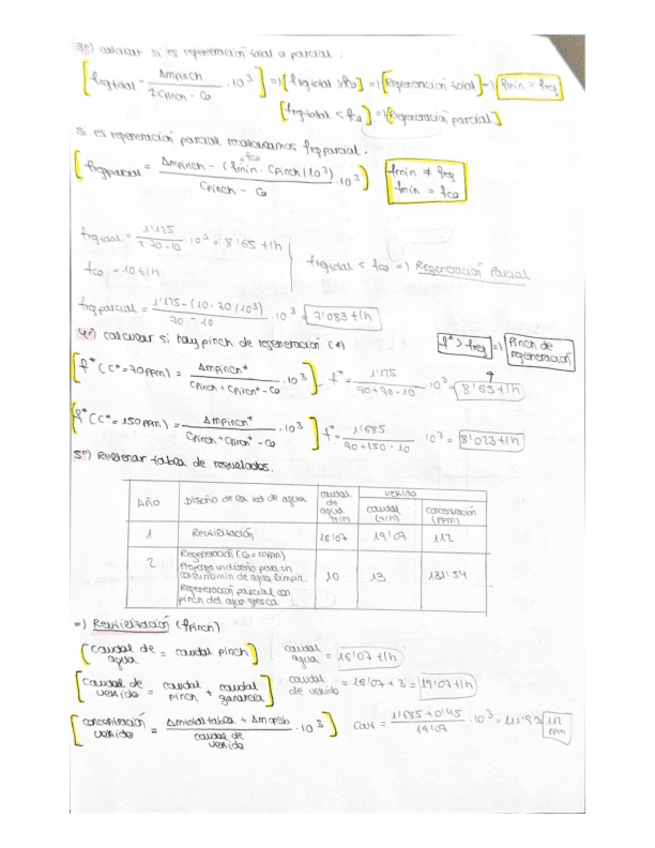 3º) calcular si es regeneración total o parcial.
[freg total = Δmpinch / 2Cpinch - C0 · 10^3] =) [freg total > fco] =) [Regeneración total] =) [fmin = freg]
[freg total < fco] =) [Regeneración parcial]
Si es regeneración parcial recalculamos freg parcial.
[freg parcial = Δmpinch - (fmin · Cpinch / 10^3) / Cpinch - C0 · 10^3]
fco
fmin ≠ freg
fmin = fco
freg total = 1'125 / 2·70-10 · 10^3 = 8'65 t/h
fco = 10 t/h
freg total < fco =) Regeneración Parcial
freg parcial = 1'125 - (10·70/10^3) / 70 - 10 · 10^3 = 7'083 t/h
4º) calcular si hay pinch de regeneración (*)
f* > freg =) Pinch de regeneración
[f* (C* = 70 ppm) = Δmpinch* / Cpinch + Cpinch* - C0 · 10^3] f* = 1'125 / 70+70-10 · 10^3 = 8'65 t/h
[f* (C* = 150 ppm) = Δmpinch* / Cpinch + Cpinch* - C0 · 10^3] f* = 1'685 / 70+150-10 10^3 = 8'023 t/h
5º) Rellenar tabla de resultados.
Año | Diseño de la red de agua | caudal de agua (t/h) | vertido
caudal (t/h) | concentración (ppm)
1 | Reutilización | 16'07 | 19'07 | 112
2 | Regeneración (C0 = 10ppm)
Proponga un diseño para un
consumo min de agua limpia. | 10 | 13 | 131'54
Regeneración parcial con
pinch del agua fresca
=) Reutilización (fpinch)
[caudal de agua = caudal pinch] caudal agua = 16'07 t/h
[caudal de vertido = caudal pinch + caudal ganancia] caudal de vertido = 16'07 + 3 = 19'07 t/h
[concentración vertido = Δmtotal tabla + Δm / caudal de vertido · 10^3] = 1'685 + 0'45 / 19'07 · 10^3 = 112 ppm